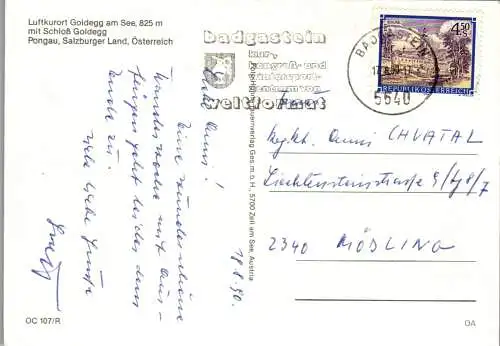 Luftkurort Goldegg am See, 825 m
mit Schloß Goldegg
Pongau, Salzburger Land, Österreich
badgastein
kur-,
kongreß- und
wintersport-
zentrum von
weltformat
5640
4.50
S
REPUBLIK ÖSTERREICH
Anni!
Eine wunderschöne
Wanderwoche mit Aus-
geht leider dem
Ende zu.
viele liebe Grüße
18.8.90.
Anni CHVATAL
Liechtensteinstraße
2340 MÖDLING
Ges.m.b.H., 5700 Zell am See, Austria
OC 107/R
OA